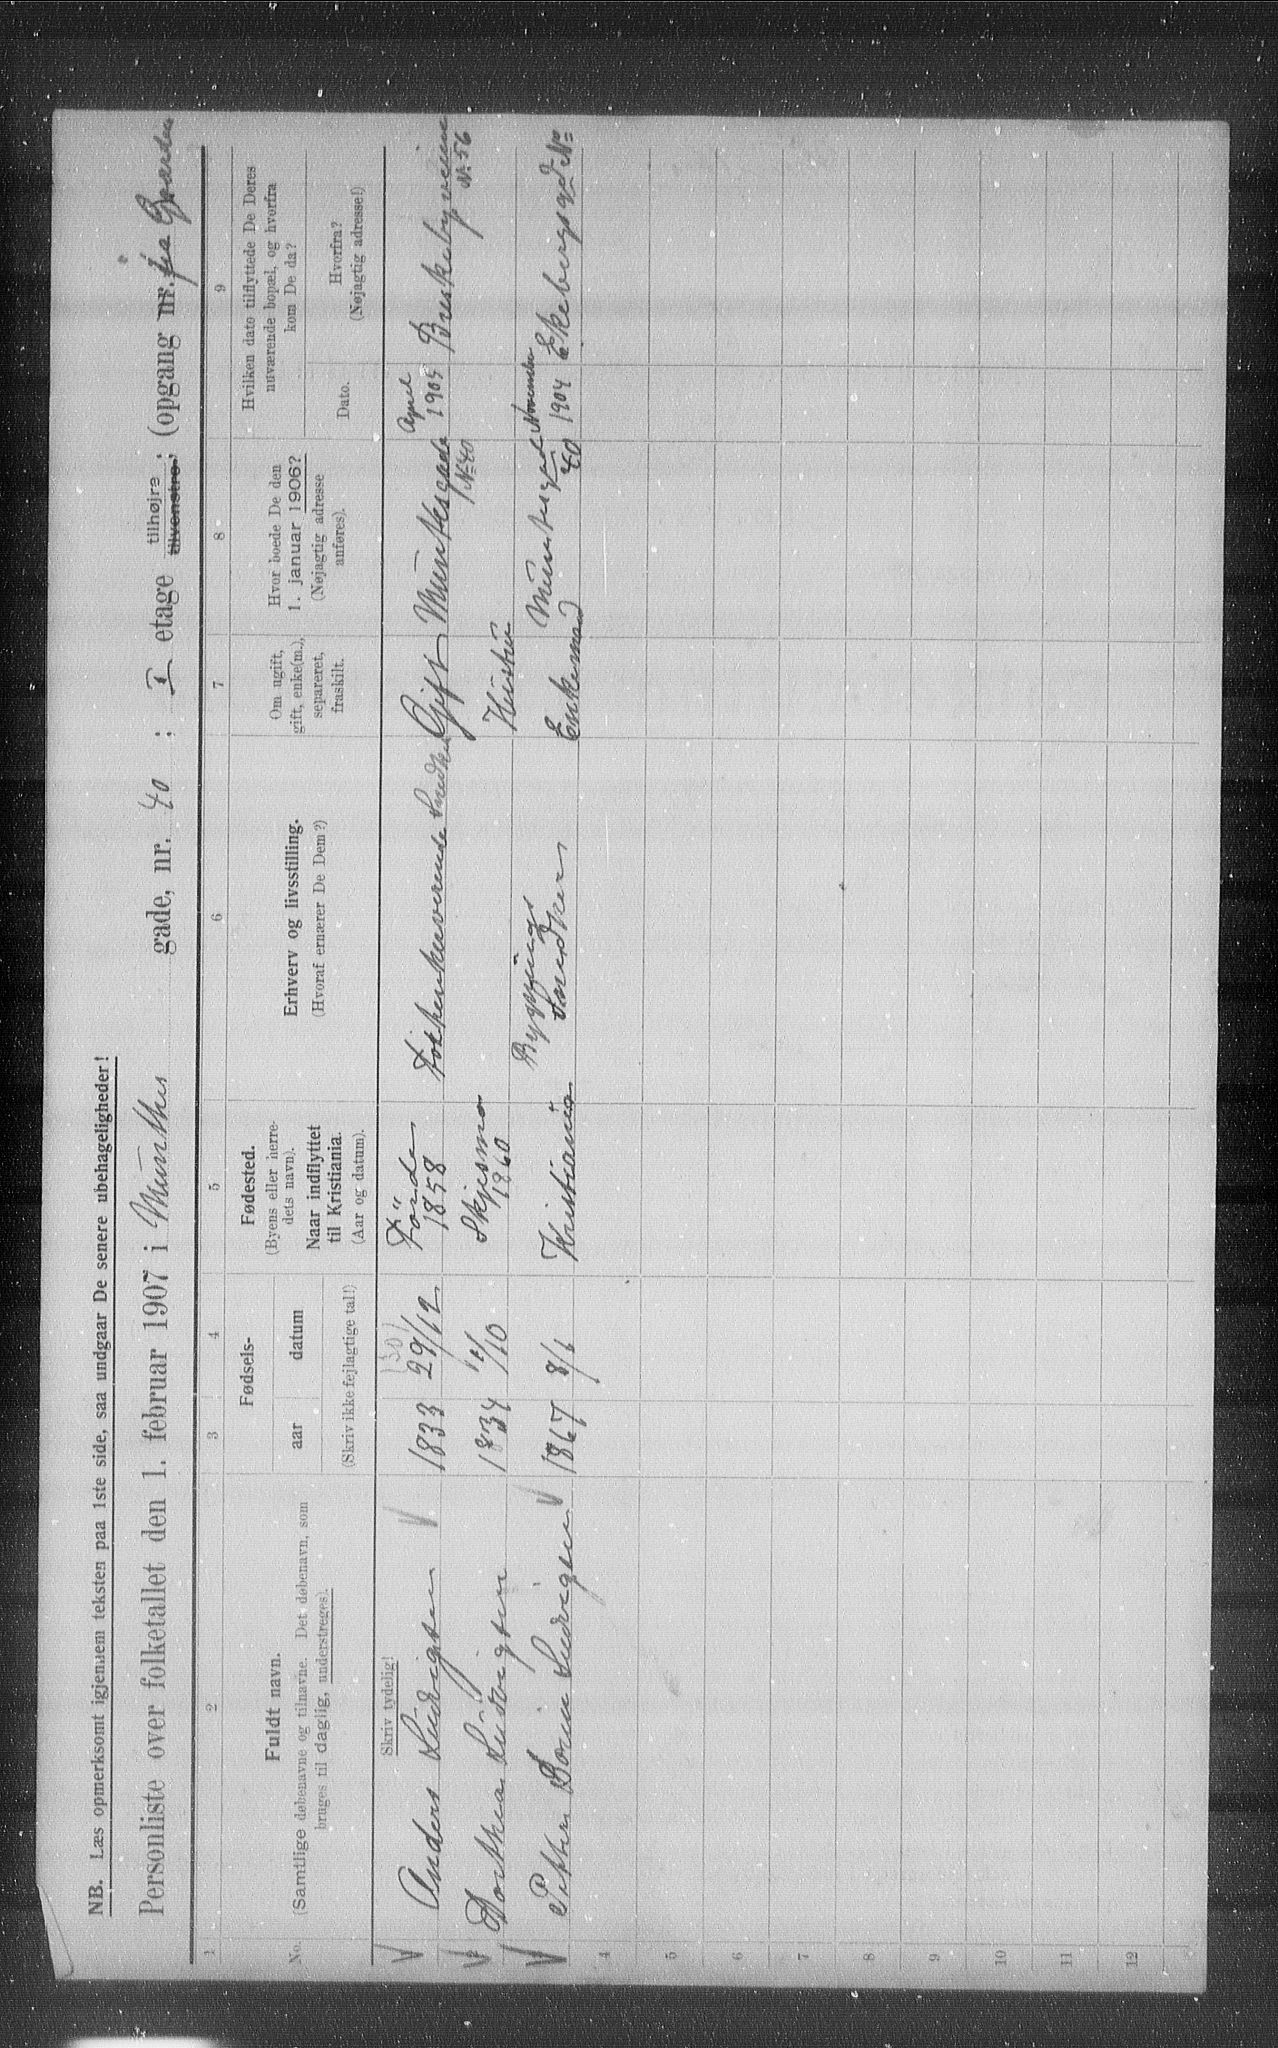 NB. Læs opmerksomt igjennem teksten paa 1ste side, saa undgaar De senere ubehageligheder!
Personliste over folketallet den 1. februar 1907 i Münthes gade, nr. 40; I etage tilhøjre tilvenstre; (opgang nr. fra Gaarden
1 2 3 4 5 6 7 8 9
No.
Fuldt navn.
(Samtlige døbenavne og tilnavne. Det døbenavn, som
bruges til daglig, understreges).
Fødsels-
aar datum
(Skriv ikke fejlagtige tal!)
Fødested.
(Byens eller herre-
dets navn).
Naar indflyttet
til Kristiania.
(Aar og datum).
Erhverv og livsstilling.
(Hvoraf ernærer De Dem?)
Om ugift,
gift, enke(m.),
separeret,
fraskilt.
Hvor boede De den
1. januar 1906?
(Nøjagtig adresse
anføres).
Hvilken dato tilflyttede De Deres
nuværende bopæl, og hvorfra
kom De da?
Dato.
Hvorfra?
(Nøjagtig adresse!)
Skriv tydelig!
Anders Ludvigsen 1833 29/12 1858 Gift Münthesgade No 40 April 1905 Briskebyveien No 56
Dorthea Ludvigsen 1834 /10 Skjesmo 1860 Hustru
Petter Ludvigsen 1867 8/6 Kristiania Bygnings Snedker Enkemand Munthesgade 40 November 1904 Ekebergsgd No
4
5
6
7
8
9
10
11
12